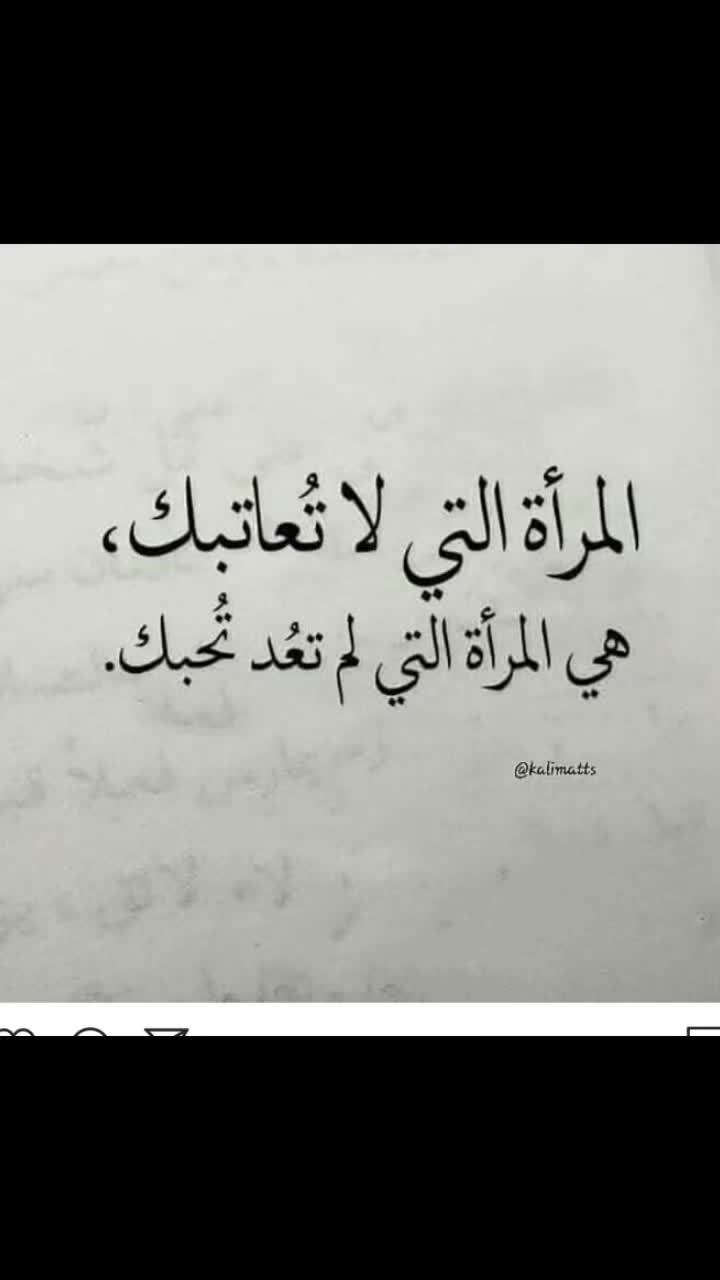 المرأة التي لا تُعاتبك،
هي المرأة التي لم تعُد تُحبك.
@kalimatts